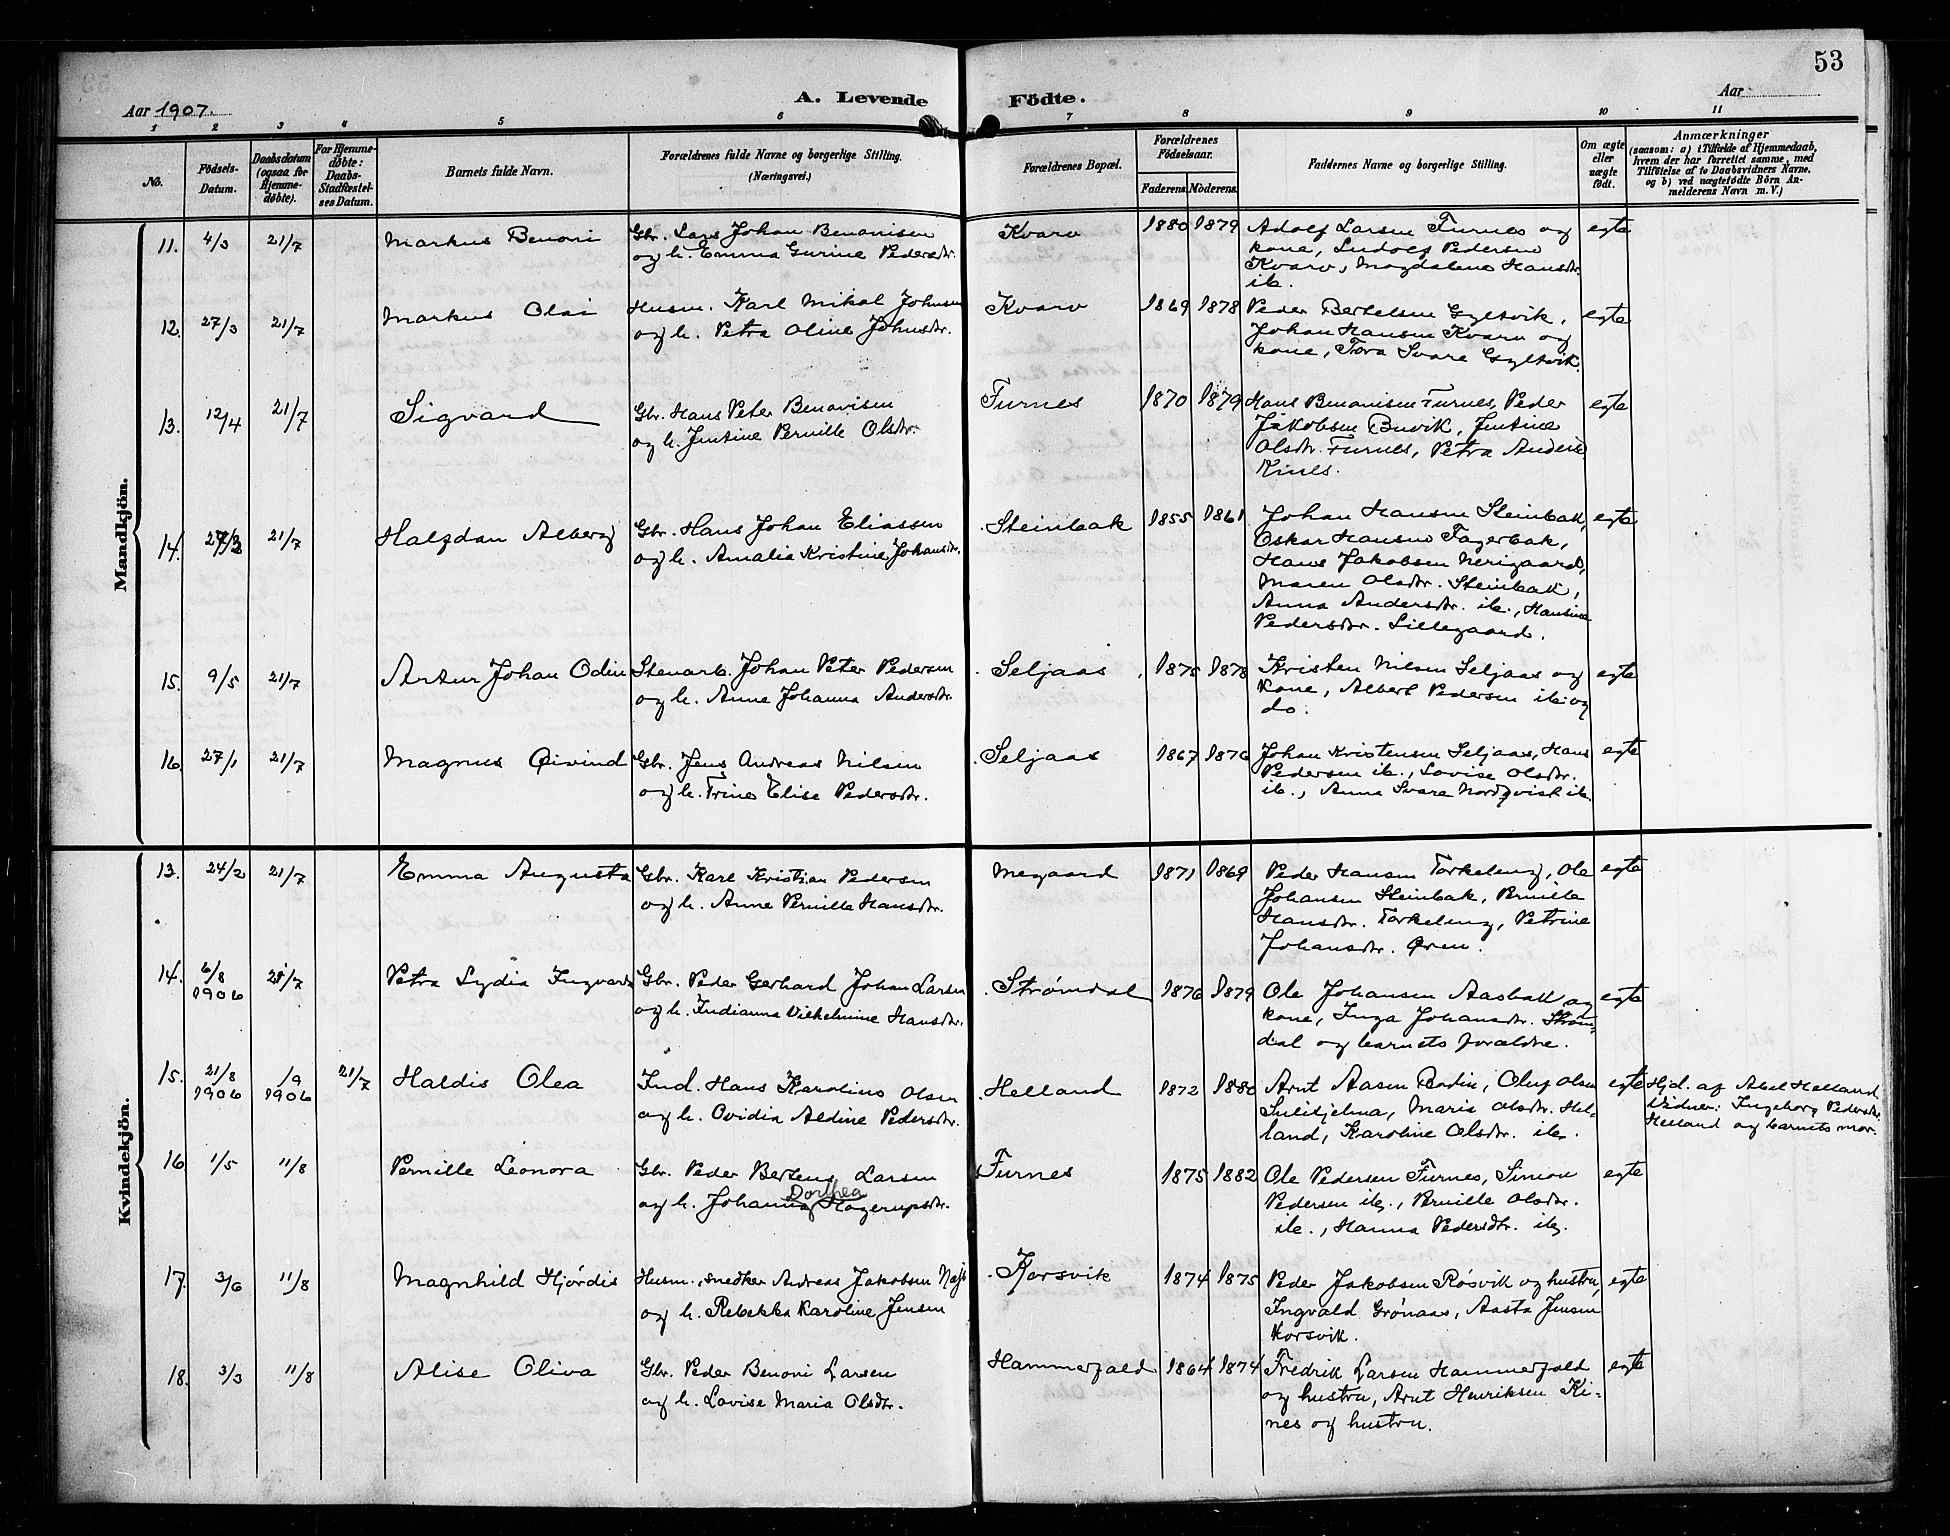 53
Aar 1907.
A. Levende Födte.
Aar
1 2 3 4 5 6 7 8 9 10 11
No.
Födsels-
Datum.
Daabsdatum
(ogsaa for
Hjemme-
döbte).
For Hjemme-
døbte:
Daabs-
Stadfæstel-
ses Datum.
Barnets fulde Navn.
Forældrenes fulde Navne og borgerlige Stilling.
(Næringsvei.)
Forældrenes Bopæl.
Forældrenes
Födselsaar.
Faderens.
Möderens.
Faddernes Navne og borgerlige Stilling.
Om ægte
eller
uægte
født.
Anmærkninger
(saasom: a) i Tilfælde af Hjemmedaab,
hvem der har forrettet samme, med
Tilföielse af to Daabsvidners Navne,
og b) ved uægtefödte Börn An-
melderens Navn m. V.)
Mandkjön.
11. 4/3 21/7 Markus Benoni
Gbr. Lars Johan Benonisen
og h. Emma Gurine Pedersdtr.
Kvarv 1880 1879
Adolf Larsen Furnes og
kone, Ludolf Pedersen
Kvarv, Magdalene Hansdtr.
ib.
egte
12. 27/3 21/7 Markus Olai
Husm. Karl Mikal Johnsen
og h. Petra Oline Johnsdtr.
Kvarv 1869 1878
Peder Bertelsen Gyltvik,
Johan Hansen Kvarv og
kone, Tora Svare Gyltvik.
egte
13. 12/4 21/7 Sigvard
Gbr. Hans Peter Benonisen
og h. Jentine Pernille Olsdtr.
Furnes 1870 1879
Hans Benonisen Furnes, Peder
Jakobsen Buvik, Jentine
Olsdtr. Furnes, Petra Anders
Kines.
egte
14. 27/3 21/7 Halfdan Alberg
Gbr. Hans Johan Eliassen
og h. Amalia Kristine Johansdtr.
Steinbak 1855 1861
Johan Hansen Steinbakk,
Oskar Hansen Fagerbak,
Hans Jakobsen Nerigaard,
Maren Olsdtr. Steinbakk,
Anna Andersdtr. ib., Hansine
Pedersdtr. Lillegaard.
egte
15. 9/5 21/7 Artur Johan Odin
Stenarb. Johan Peter Pedersen
og h. Anne Johanna Andersdtr.
Seljaas 1875 1878
Kristen Nilsen Seljaas og
kone, Albert Pedersen ib. og
do.
egte
16. 27/1 21/7 Magnus Øivind
Gbr. Jens Andreas Nilsen
og h. Trine Elise Pedersdtr.
Seljaas 1867 1876
Johan Kristensen Seljaas, Hans
Pedersen ib., Lovise Olsdtr.
ib., Anna Svare Nordqvist ib.
egte
Kvindekjön.
13. 24/2 21/7 Emma Augusta
Gbr. Karl Kristian Pedersen
og h. Anne Pernille Hansdtr.
Megaard 1871 1869
Peder Hansen Torkeleng, Ole
Johansen Steinbak, Pernille
Hansdtr. Torkeleng, Petrine
Johansdtr. Øren.
egte
14. 6/8 1906 21/7 Petra Lydia Ingvarda
Gbr. Peder Gerhard Johan Larsen
og h. Indianna Vilhelmine Hansdtr.
Strømdal 1876 1879
Ole Johansen Aasbakk og
kone, Inga Johansdtr. Strøm-
dal og barnets forældre.
egte
15. 21/8 1906 1/9 1906 21/7 Haldis Olea
Ind. Hans Karolius Olsen
og h. Ovidia Aldine Pedersdtr.
Helland 1872 1880
Arnt Aasen Bodin, Oluf Olsen
Sulitjelma, Maria Olsdtr. Hel-
land, Karoline Olsdtr. ib.
egte
Hjd. af Abel Helland
Vidner: Ingeborg Pedersdtr.
Helland og barnets mor.
16 1/5 11/8 Pernille Leonora
Gbr. Peder Bertens Larsen
Dorthea
og h. Johanna Hagerupsdtr.
Furnes 1875 1882
Ole Pedersen Furnes, Simon
Pedersen ib., Pernille Olsdtr.
ib., Hanna Pedersdtr. ib.
egte
17. 3/6 11/8 Magnhild Hjørdis
Husm., snedker Andreas Jakobsen
og h. Rebekka Karoline Jensen
Korsvik 1874 1875
Peder Jakobsen Røsvik og hustru,
Ingvald Grønaas, Aasta Jensen
Korsvik.
egte
18. 3/3 11/8 Alise Oliva
Gbr. Peder Benoni Larsen
og h. Lovise Maria Olsdtr.
Hammerfald 1864 1874
Fredrik Larsen Hammerfald
og hustru, Arnt Henriksen Ki-
nes og hustru.
egte